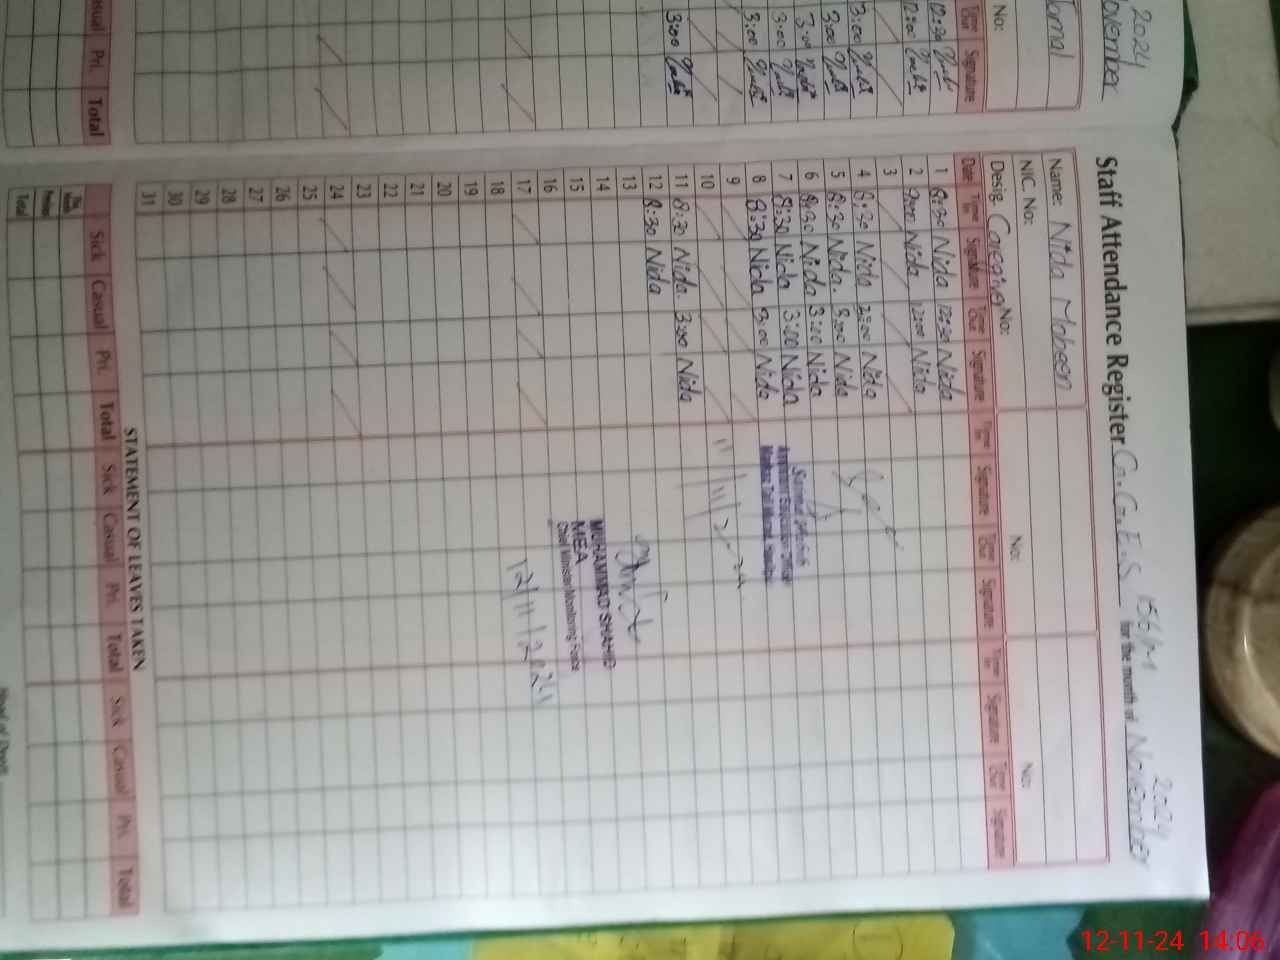 2024
November
No:
Time Out Signature
12:30
12:00
3:00
3:00
3:00
3:00
3:00
3:00
Casual Pri. Total
Staff Attendance Register G.G.E.S 156/M for the month of November 2024
Name: Nida Mobeen
NIC. No:
Desig. Caregiver No: No: No:
Date Time In Signature Time Out Signature Time In Signature Time Out Signature Time In Signature Time Out Signature
1 8:30 Nida 12:30 Nida
2 Nida 12:00 Nida
3
4 8:30 Nida 3:00 Nida
5 8:30 Nida. 3:00 Nida
6 8:30 Nida 3:00 Nida
7 8:30 Nida 3:00 Nida
8 8:30 Nida 3:00 Nida
9
10
11 8:30 Nida. 3:00 Nida
12 8:30 Nida
13
14
15
16
17
18
19
20
21
22
23
24
25
26
27
28
29
30
31
MUHAMMAD SHAHID
MEA
Chief Minister Monitoring Force
12/11/2024
STATEMENT OF LEAVES TAKEN
Sick Casual Pri. Total Sick Casual Pri. Total Sick Casual Pri. Total
Total
12-11-24 14:06